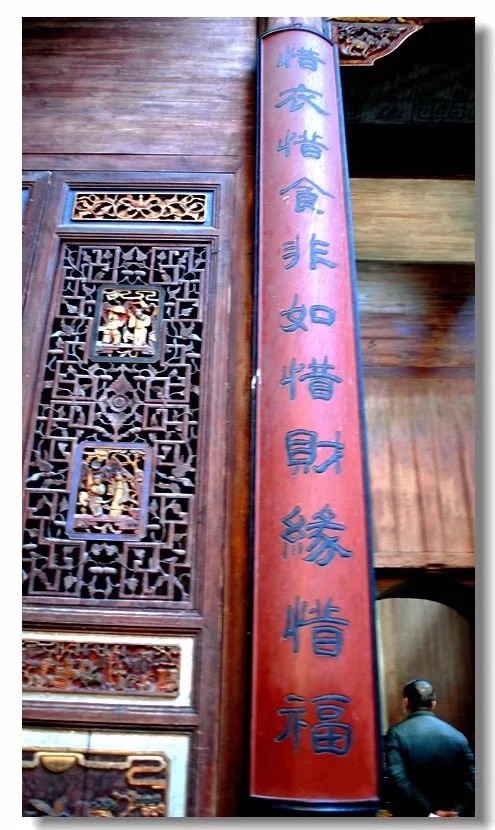 惜衣惜食非如惜財緣惜福